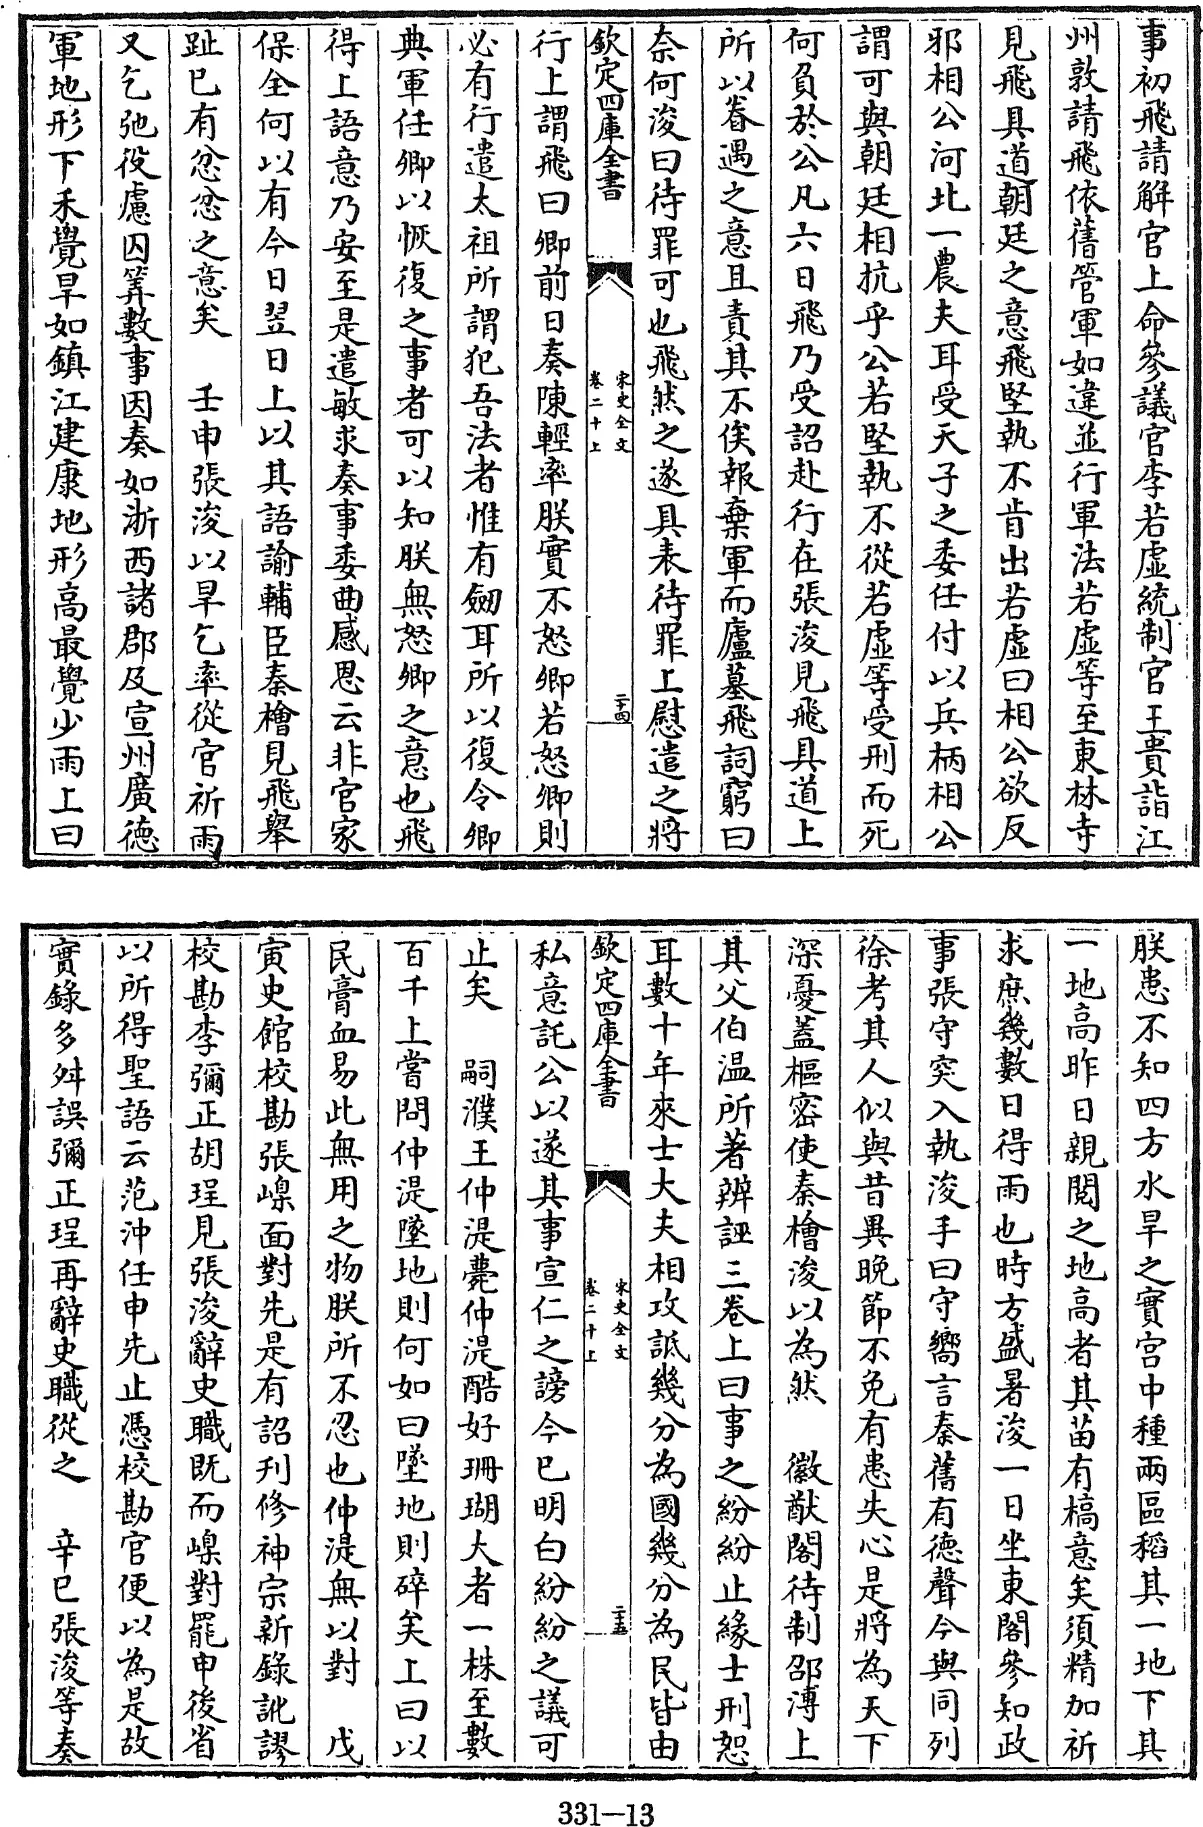 事初飛請解官上命參議官李若虛統制官王貴詣江
州敦請飛依舊管軍如違並行軍法若虛等至東林寺
見飛具道朝廷之意飛堅執不肯出若虛曰相公欲反
邪相公河北一農夫耳受天子之委任付以兵柄相公
謂可與朝廷相抗乎公若堅執不從若虛等受刑而死
何負於公凡六日飛乃受詔赴行在張浚見飛具道上
所以眷遇之意且責其不俟報棄軍而廬墓飛詞窮曰
奈何浚曰待罪可也飛然之遂具表待罪上慰遣之將
欽定四庫全書
宋史全文
卷二十上
二十四
行上謂飛曰卿前日奏陳輕率朕實不怒卿若怒卿則
必有行遣太祖所謂犯吾法者惟有劒耳所以復令卿
典軍任卿以恢復之事者可以知朕無怒卿之意也飛
得上語意乃安至是遣敏求奏事委曲感恩云非官家
保全何以有今日翌日上以其語諭輔臣秦檜見飛舉
趾已有忿忿之意矣　壬申張浚以旱乞率從官祈雨
又乞弛役慮囚等數事因奏如浙西諸郡及宣州廣德
軍地形下禾覺旱如鎮江建康地形高最覺少雨上曰
朕患不知四方水旱之實宮中種兩區稻其一地下其
一地高昨日親閲之地高者其苗有槁意矣須精加祈
求庶幾數日得雨也時方盛暑浚一日坐東閣參知政
事張守突入執浚手曰守嚮言秦舊有德聲今與同列
徐考其人似與昔異晚節不免有患失心是將為天下
深憂蓋樞密使秦檜浚以為然　徽猷閣待制邵溥上
其父伯温所著辨誣三卷上曰事之紛紛止緣士刑恕
耳數十年來士大夫相攻詆幾分為國幾分為民皆由
欽定四庫全書
宋史全文
卷二十上
二十五
私意託公以遂其事宣仁之謗今已明白紛紛之議可
止矣　嗣濮王仲湜薨仲湜酷好珊瑚大者一株至數
百千上嘗問仲湜墜地則何如曰墜地則碎矣上曰以
民膏血易此無用之物朕所不忍也仲湜無以對　戊
寅史館校勘張嵲面對先是有詔刋修神宗新錄訛謬
校勘李彌正胡珵見張浚辭史職既而嵲對罷申後省
以所得聖語云范沖任申先止憑校勘官便以為是故
實錄多舛誤彌正珵再辭史職從之　辛巳張浚等奏
331—13